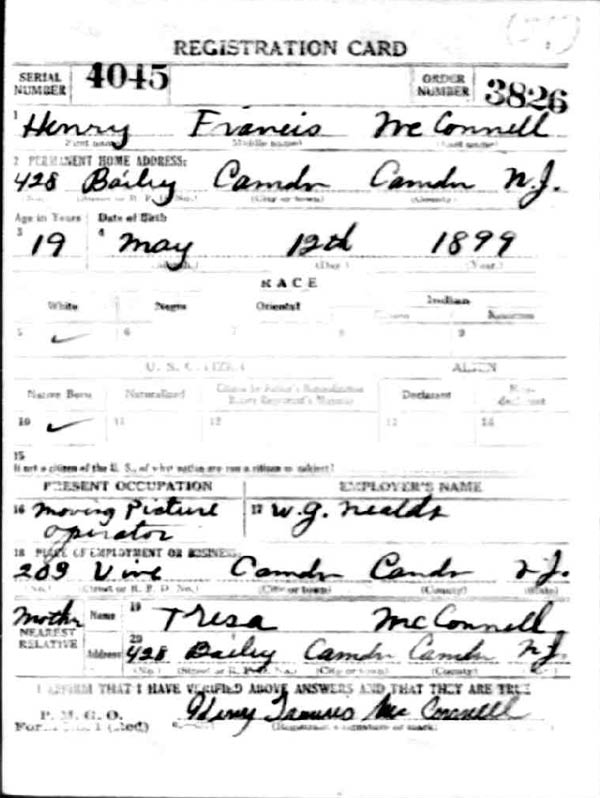 REGISTRATION CARD
SERIAL NUMBER 4045 ORDER NUMBER 3826
1 Henry Francis McConnell
(First name) (Middle name) (Last name)
2 PERMANENT HOME ADDRESS:
428 Bailey Camden Camden N.J.
(No.) (Street or R. F. D. No.) (City or town) (County)
Age in Years Date of Birth
3 19 4 May 12th 1899
(Month.) (Day.) (Year.)
RACE
White Negro Oriental Indian
Citizen Noncitizen
5 ✓ 6 7 8 9
U. S. CITIZEN ALIEN
Native Born Naturalized Citizen by Father's Naturalization Before Registrant's Majority Declarant Non-declarant
10 ✓ 11 12 13 14
15
If not a citizen of the U. S., of what nation are you a citizen or subject?
PRESENT OCCUPATION EMPLOYER'S NAME
16 Moving Picture 17 W.G.
operator
18 PLACE OF EMPLOYMENT OR BUSINESS:
209 Vine Camden Camden N.J.
(No.) (Street or R. F. D. No.) (City or town) (County) (State)
Mother Name 19 Tresa McConnell
NEAREST RELATIVE
Address 20 428 Bailey Camden Camden N.J.
(No.) (Street or R. F. D. No.) (City or town) (County)
I AFFIRM THAT I HAVE VERIFIED ABOVE ANSWERS AND THAT THEY ARE TRUE
P. M. G. O.
Henry Francis McConnell
Form 1 (Red) (Registrant's signature or mark)